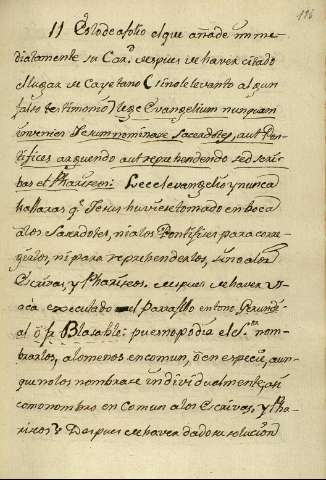 116
11 Esto de afolio el que añade inme-
diatamente su Car.ᵈ despues de haver citado
el lugar de Cayetano (si no le levanto algun
falso testimonio) lege Evangelium nunquam
invenies Jesum nominare Sacerdotes, aut Pon-
tifices arguendo aut reprehendendo sed scri-
bas et Phariseos: Lee el evangelio y nunca
hallaras q.ᵉ Jesus huviese tomado en boca
a los Sacerdotes, ni a los Pontifices para corre-
girlos, ni para reprehenderlos, sino a los
Escrivas, y Phariseos. despues de haver
executado el parrafillo en tono Gerundi-
al ò fr. Blas ahi: pues no podia el S.ᵒʳ nom-
brarlos, alomenos en comun, ò en especie, aun-
que no los nombrase individualmente, asi
como nombro en comun a los Escrivas, y Pha-
riseos? Despues de haver dado su resolucion